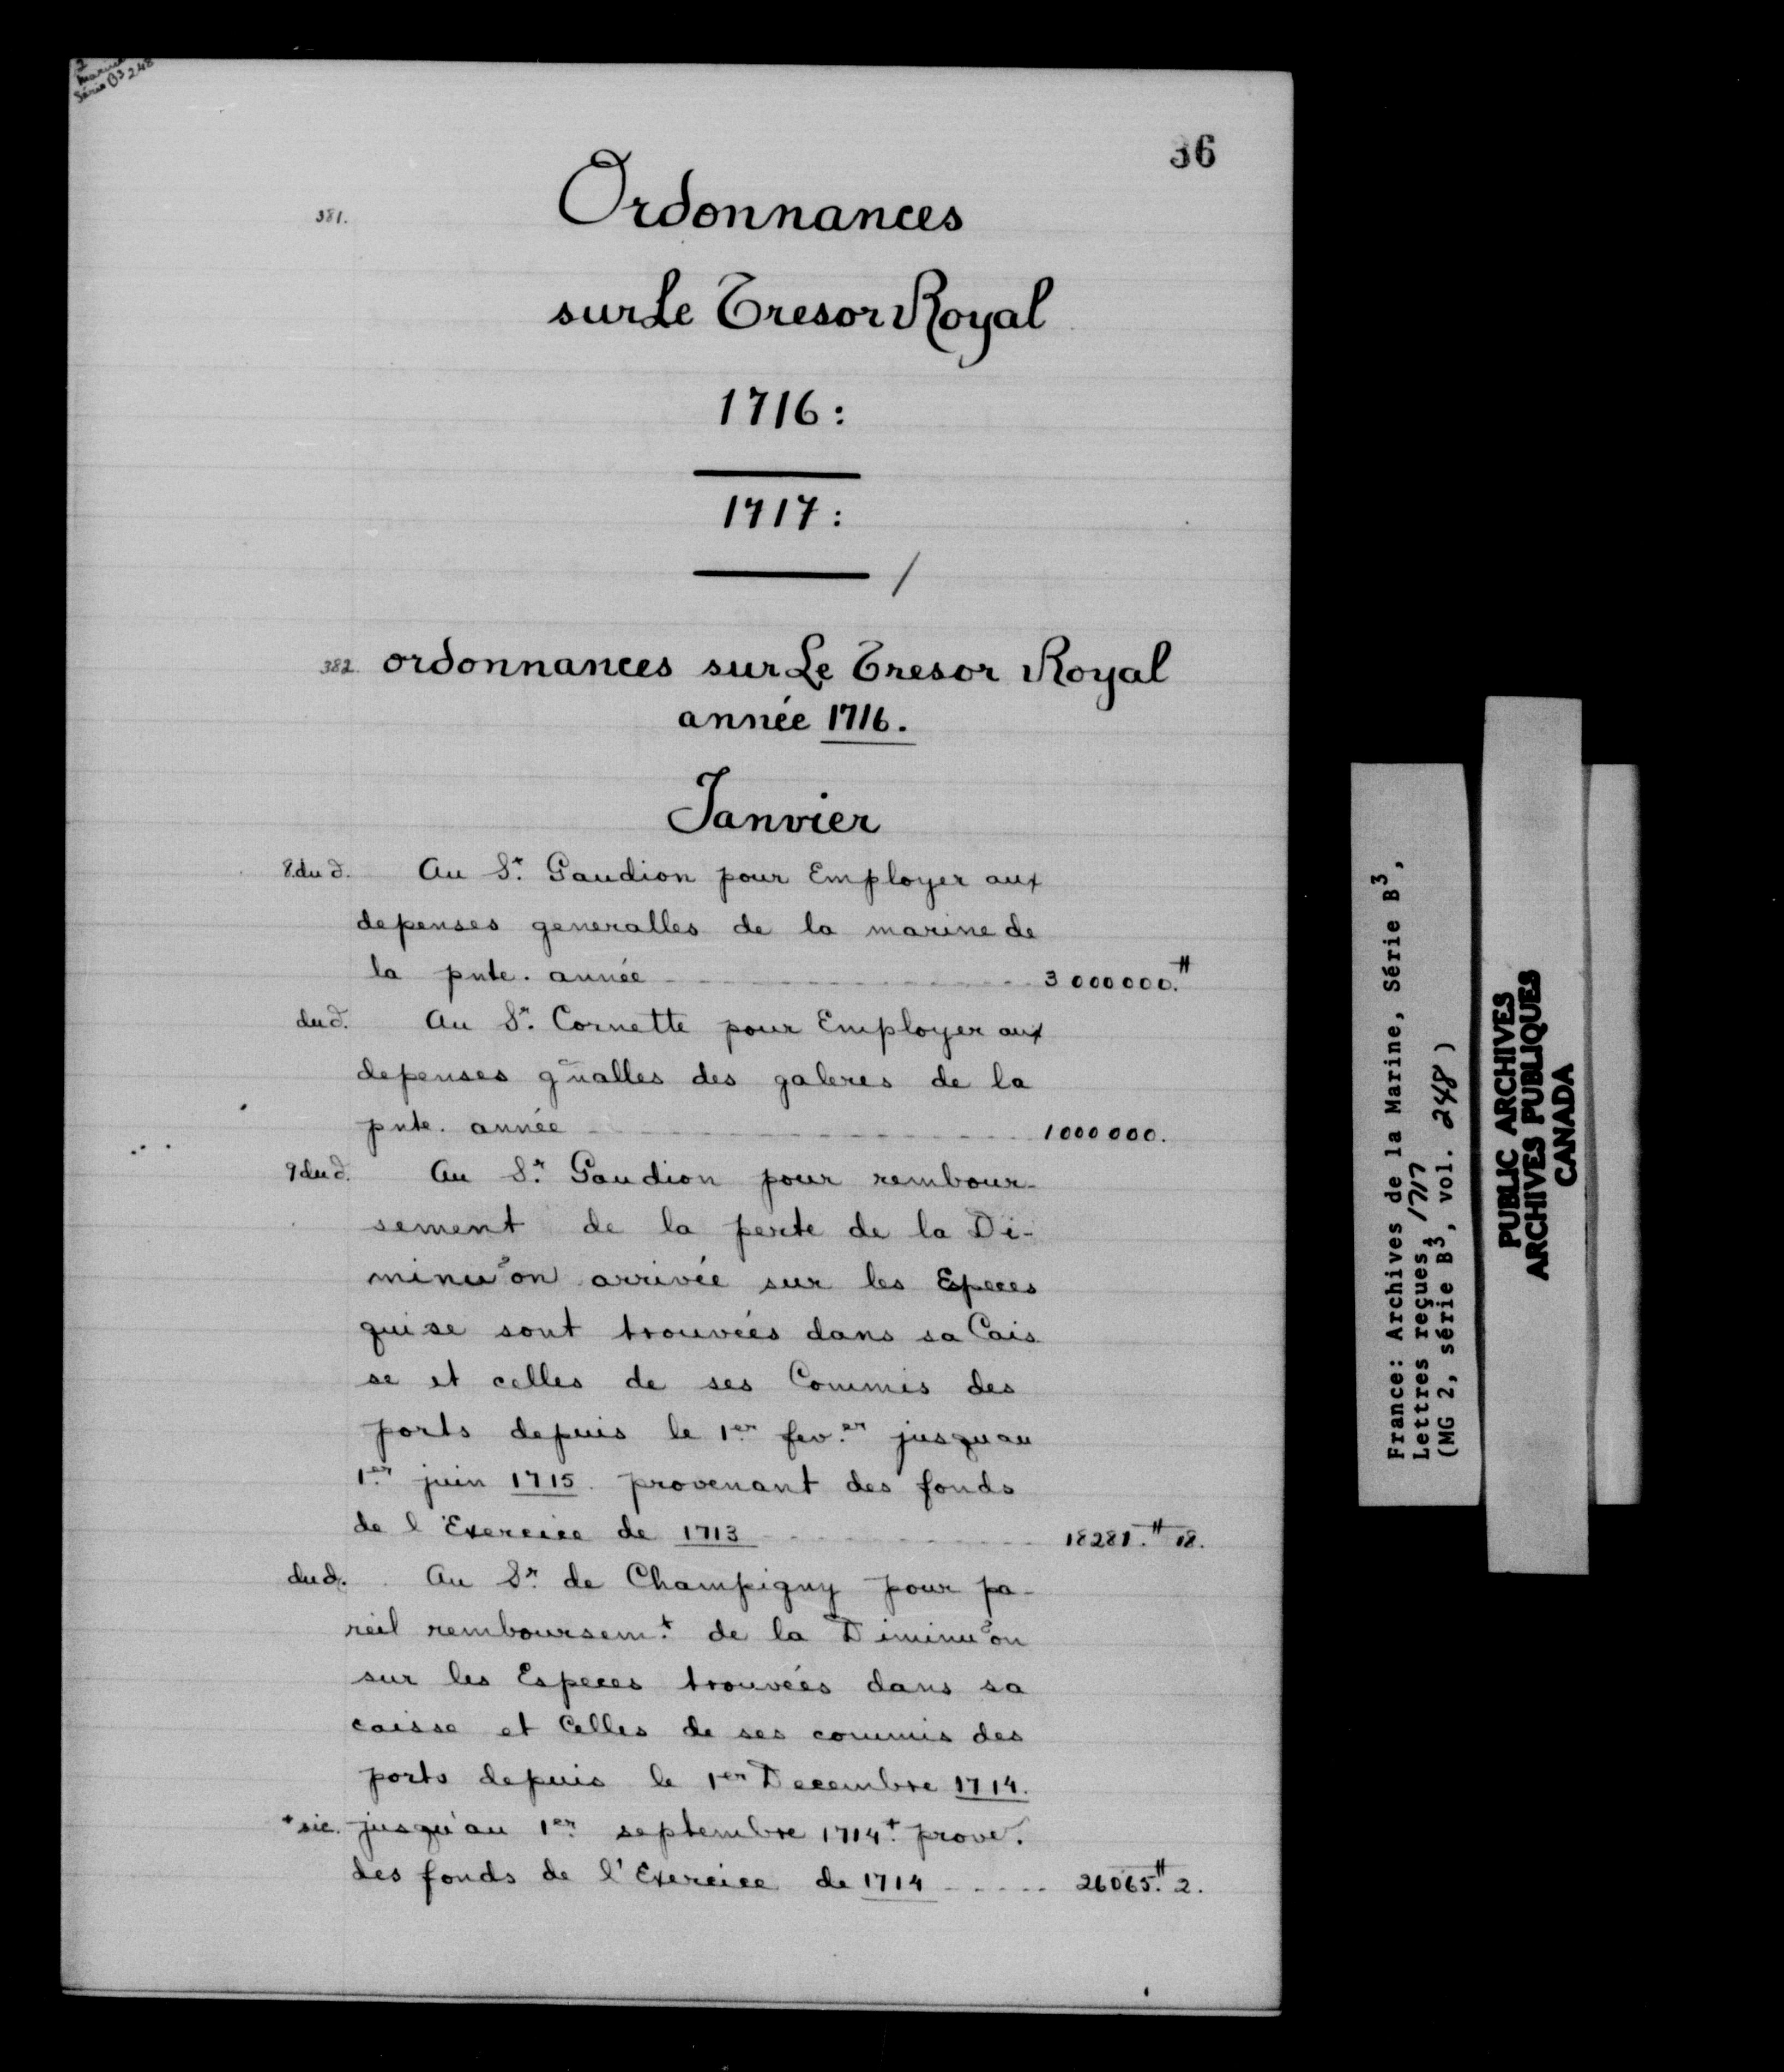 2
Marine
Série B3 248
36
381.
Ordonnances
sur Le Tresor Royal
1716:
1717:
382. ordonnances sur Le Tresor Royal
année 1716.
Janvier
8. du d. Au Sr. Gaudion pour Employer aux
depenses generalles de la marine de
la pnte. année 3000000.#
du d. Au Sr. Cornette pour Employer aux
depenses gñalles des galeres de la
pnte. année 1000000.
9 du d. Au Sr. Gaudion pour rembour-
sement de la perte de la Di-
minuõn arrivée sur les Especes
qui se sont trouvées dans sa Cais
se et celles de ses Commis des
ports depuis le 1er fev.er jusquau
1er juin 1715. provenant des fonds
de l'Exercice de 1713 18281.# 18.
du d. Au Sr. de Champigny pour pa-
reil remboursem.t de la Diminuõn
sur les Especes trouvées dans sa
caisse et Celles de ses commis des
ports depuis le 1er Decembre 1714.
+ sic. jusqu'au 1er septembre 1714.+ prove.
des fonds de l'Exercice de 1714 26065.# 2.
France: Archives de la Marine, Série B3,
Lettres reçues, 1717
(MG 2, série B3, vol. 248)
PUBLIC ARCHIVES
ARCHIVES PUBLIQUES
CANADA